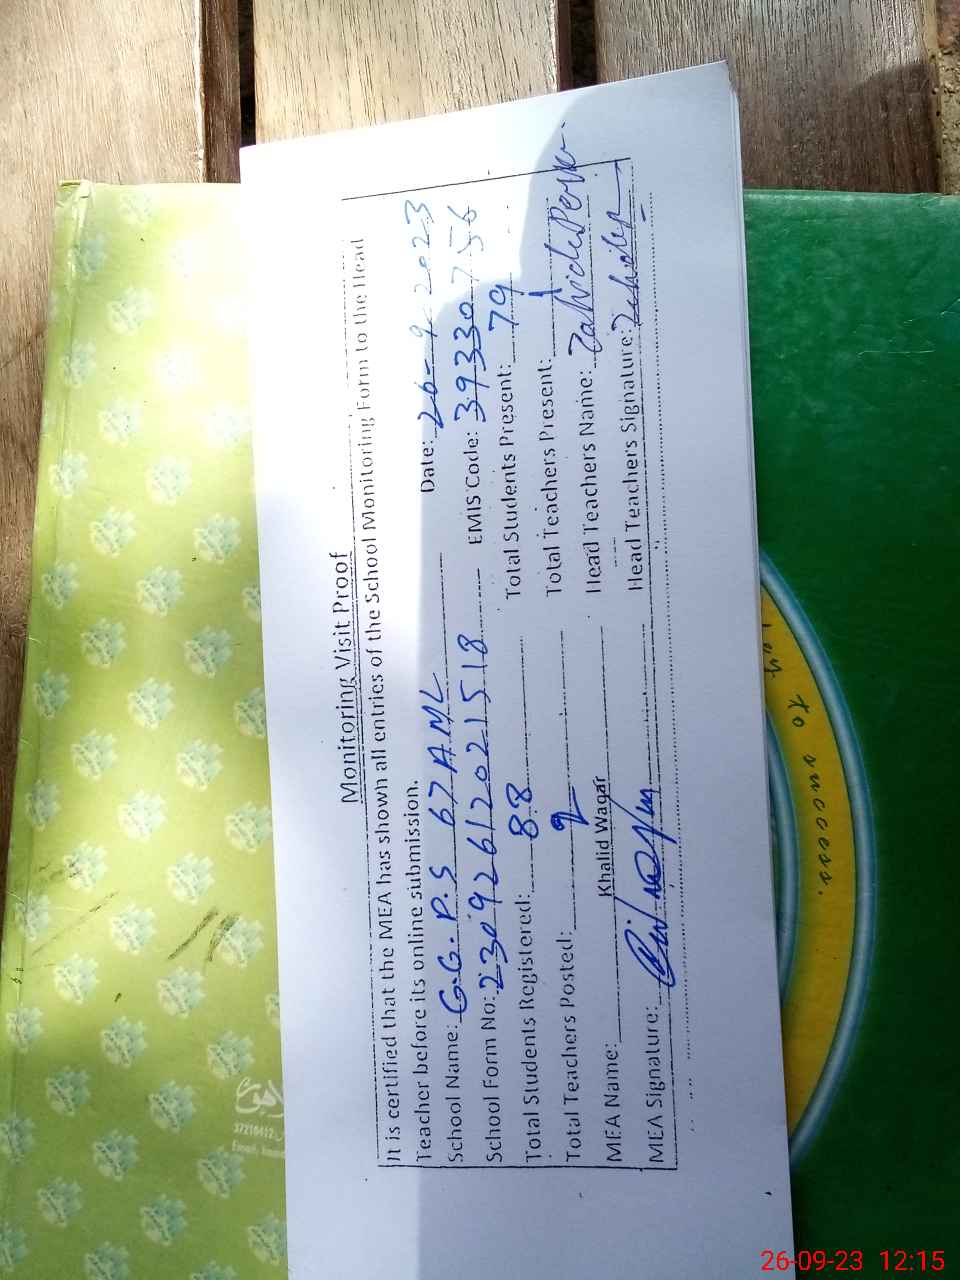 Monitoring Visit Proof
It is certified that the MEA has shown all entries of the School Monitoring Form to the Head
Teacher before its online submission.
Date: 26-9-2023
School Name: G.G.P.S 67 AML
EMIS Code: 39330756
School Form No: 23092612021518
Total Students Present: 79
Total Students Registered: 88
Total Teachers Present: 1
Total Teachers Posted: 2
Head Teachers Name: Zahida Perveen
MEA Name: Khalid Waqar
Head Teachers Signature:
MEA Signature:
to success.
37210412
26-09-23 12:15